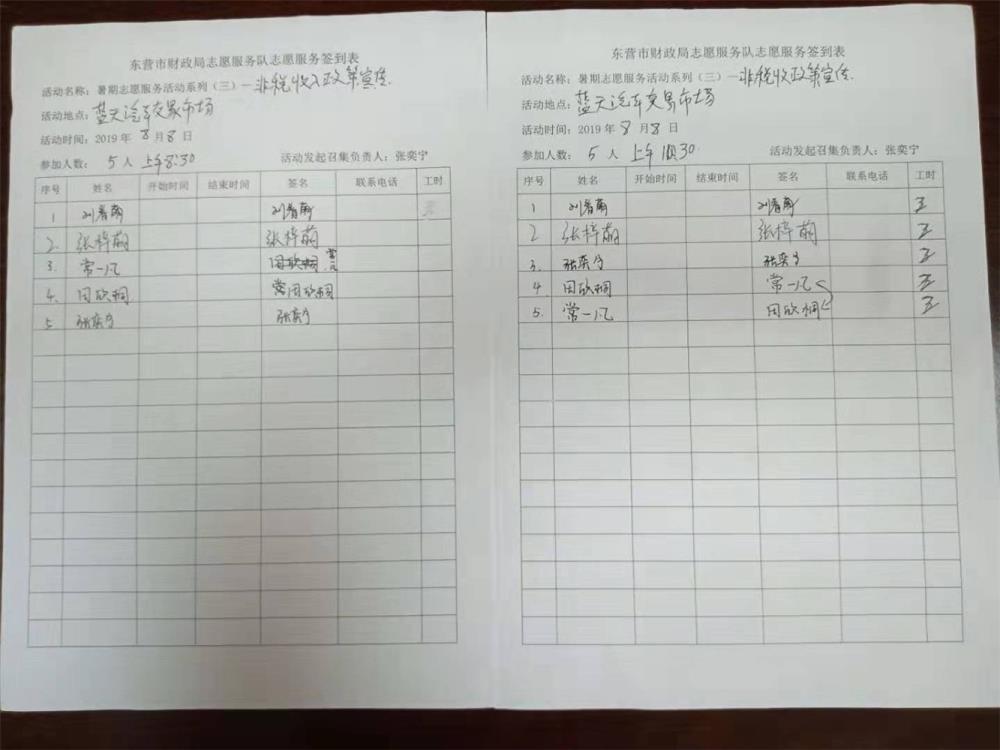 东营市财政局志愿服务队志愿服务签到表
活动名称：暑期志愿服务活动系列（三）—非税收入政策宣传.
活动地点：蓝天汽车交易市场
活动时间：2019年 8月 8日
参加人数： 5人 上午8:30 活动发起召集负责人：张奕宁
序号 姓名 开始时间 结束时间 签名 联系电话 工时
1
2. 张梓萌 张梓萌
3. 常一凡 常一凡
4. 田欣桐 田欣桐
5 张奕宁 张奕宁
东营市财政局志愿服务队志愿服务签到表
活动名称：暑期志愿服务活动系列（三）—非税收政策宣传
活动地点：蓝天汽车交易市场
活动时间：2019年 8月 8日
参加人数： 5人 上午 10:30 活动发起召集负责人：张奕宁
序号 姓名 开始时间 结束时间 签名 联系电话 工时
1
2 张梓萌 张梓萌
3. 张奕宁 张奕宁
4 田欣桐 常一凡
5. 常一凡 田欣桐